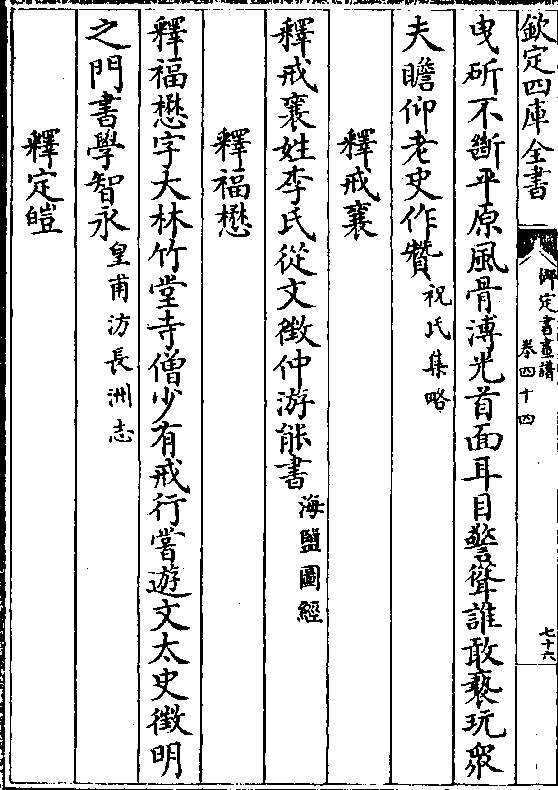 欽定四庫全書
御定書畫譜
卷四十四
七十六
曳斫不斷平原風骨溥光首面耳目警聳誰敢䙝玩衆
夫瞻仰老史作贊祝氏集略
釋戒襄
釋戒襄姓李氏從文徵仲游能書海鹽圖經
釋福懋
釋福懋字大林竹堂寺僧少有戒行嘗遊文太史徵明
之門書學智永皇甫汸長洲志
釋定皚